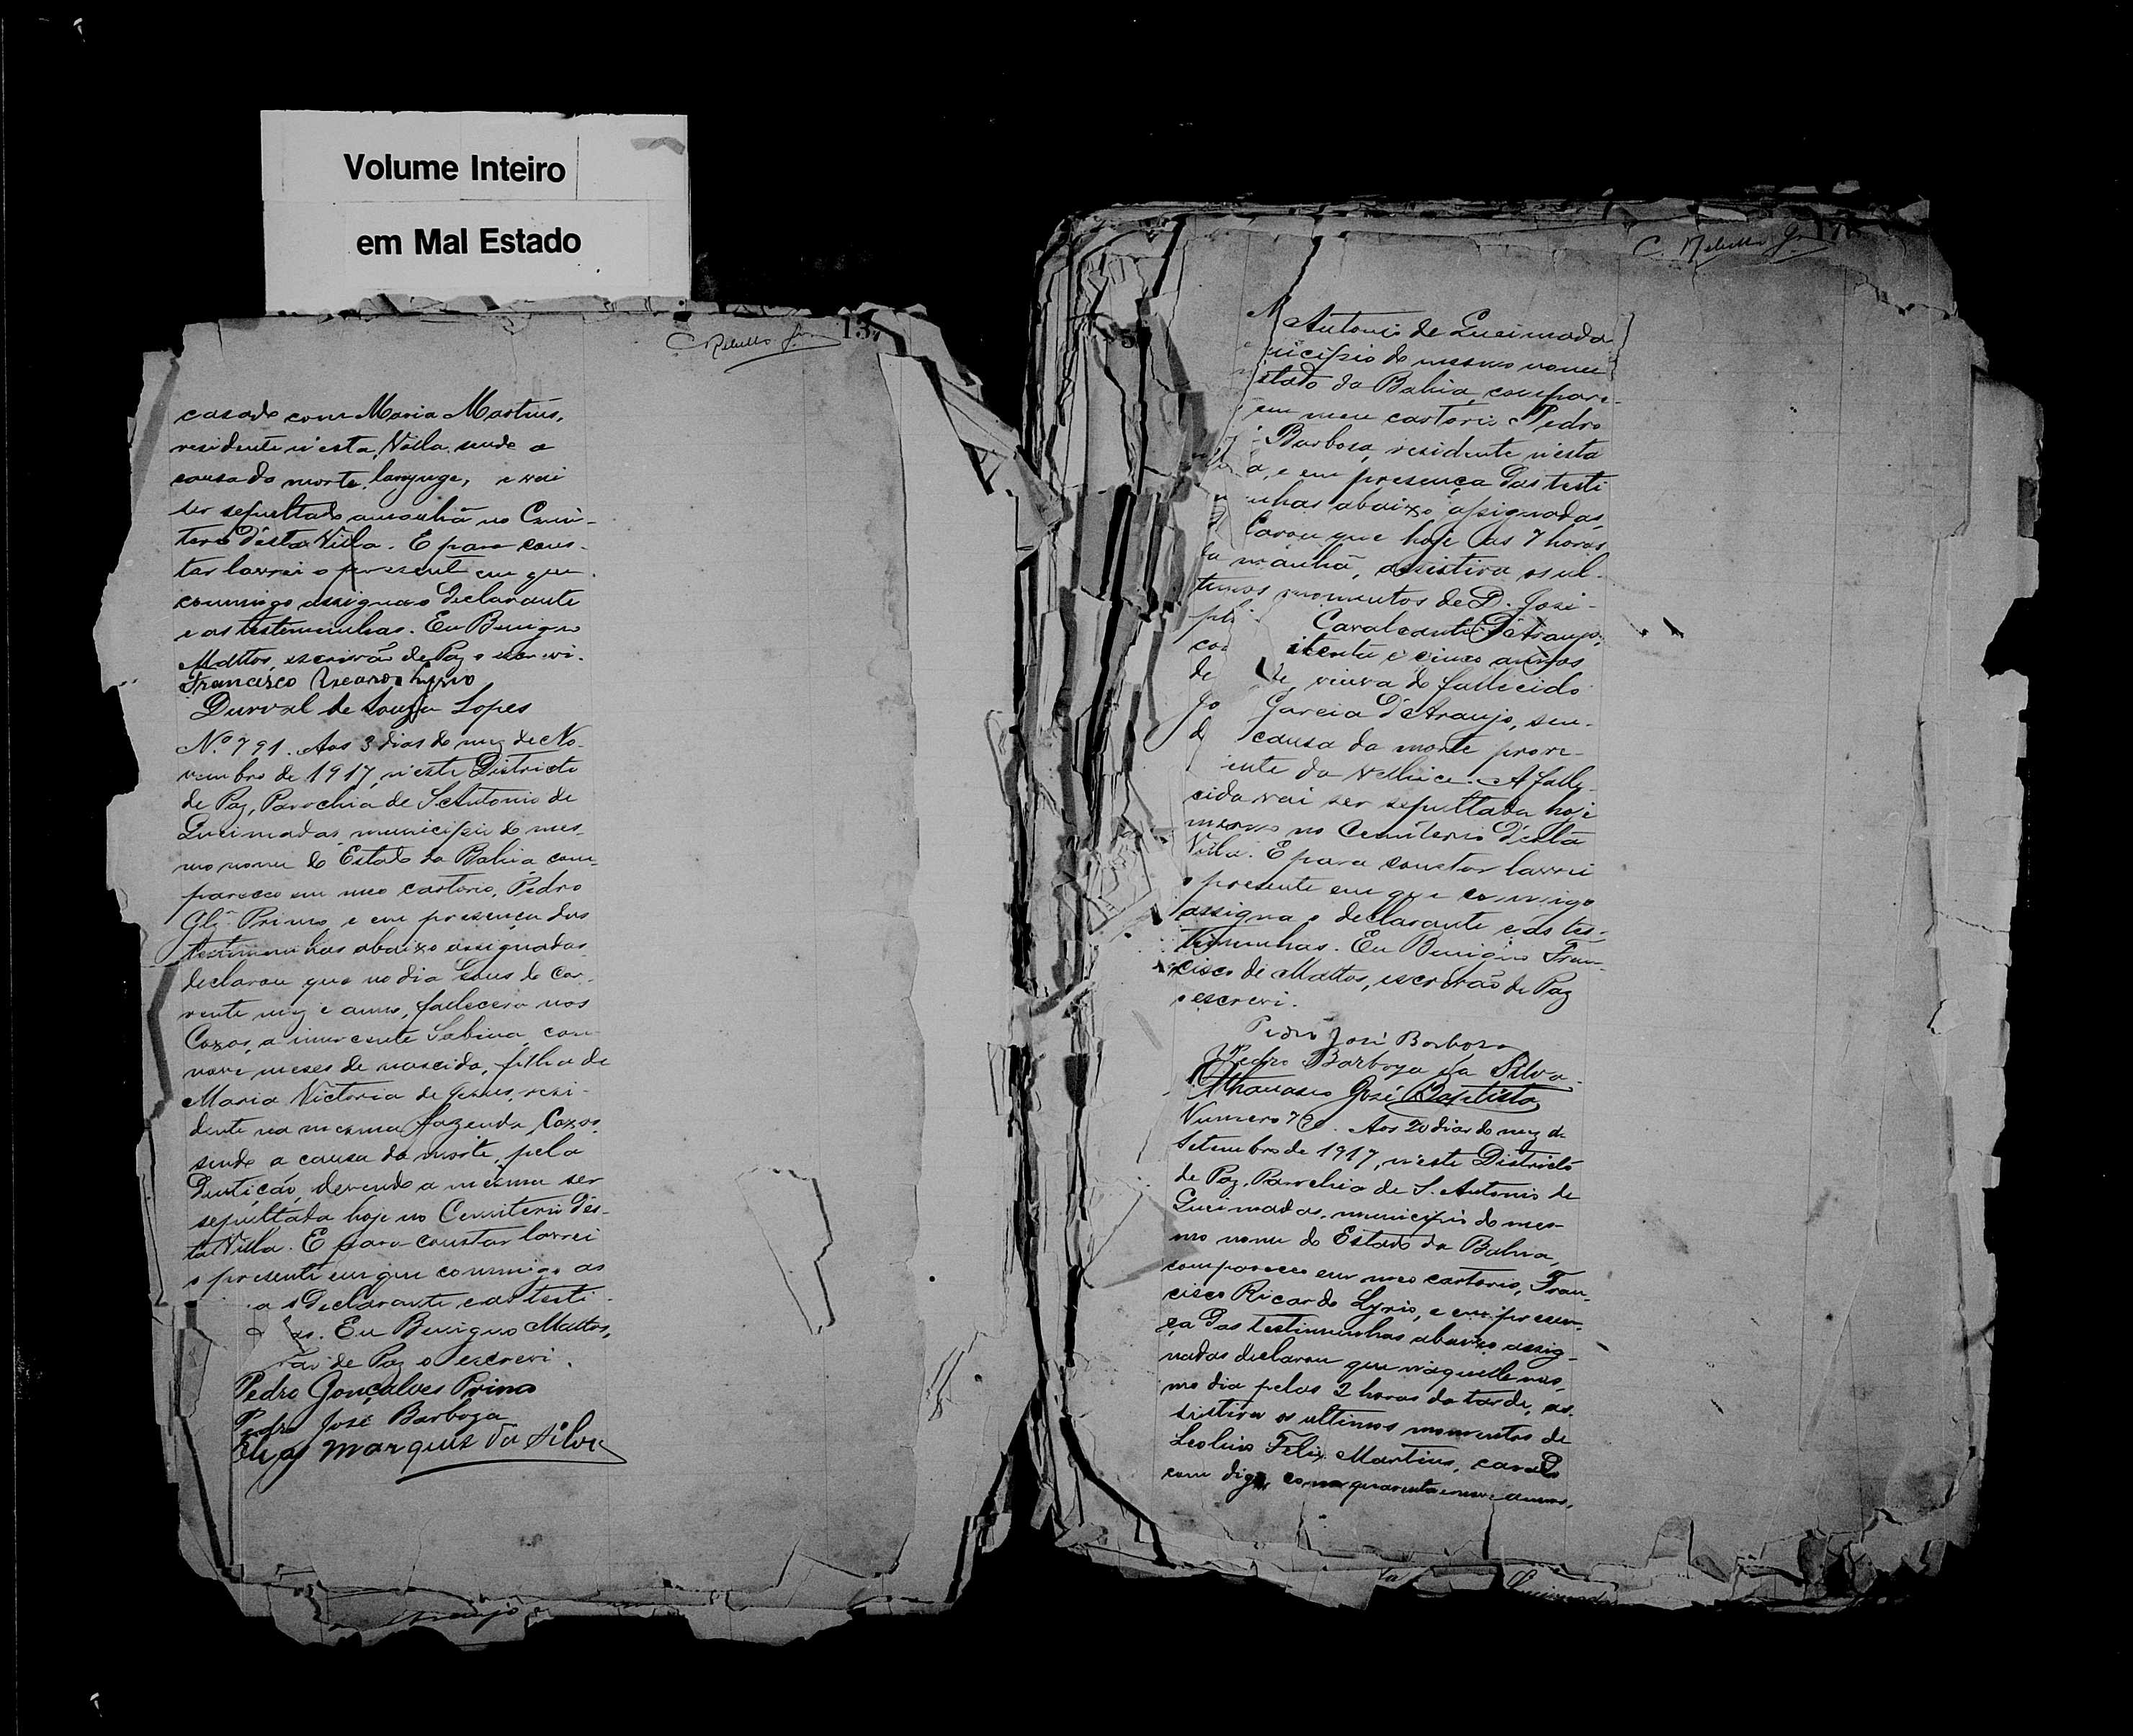 Volume Inteiro
em Mal Estado
C Rebello Jor 137
casado com Maria Martins,
residente n'esta Villa, sendo a
causa da morte, larynge, e vai
ser sepultado amanhã no Cemi-
terio d'esta Villa. E para cons-
tar lavrei o presente em que
commigo assigna o declarante
e as testemunhas. Eu Benigno
Mattos, escrivão de Paz o escrevi.
Francisco Ricardo Lyrio
Durval de Souza Lopes
N.º 791. Aos 3 dias do mez de No-
vembro de 1917, n'este Districto
de Paz, Parochia de S. Antonio de
Queimadas, municipio do mes-
mo nome do Estado da Bahia, com-
pareceo em meo cartorio, Pedro
Glz. Primo, e em presença das
testemunhas abaixo assignadas
declarou que no dia do cor-
rente mez e anno, fallecera nos
Coxos, a innocente Sabina, com
nove meses de nascida, filha de
Maria Victoria de Jesus, resi-
dente na mesma fazenda Coxos,
sendo a causa da morte, pela
Dentição, devendo a mesma ser
sepultada hoje no Cemiterio des-
ta Villa. E para constar lavrei
o presente em que commigo as
a o declarante e as testi-
as. Eu Benigno Mattos,
vão de Paz o escrevi.
Pedro Gonçalves Primo
Pedro José Barboza
Marques da Silva
Araujo
C. Rebello Jor 17
Antonio de Queimada
nicipio do mesmo nome
stado da Bahia, compare-
em meu cartorio Pedro
Barbosa, residente n'esta
a, e em presença das testi
nhas abaixo assignadas,
larou que hoje as 7 horas
da manhã, assistira os ul-
timos momentos de D. Jose-
phi Cavalcante d'Araujo,
co itenta e cinco annos
de de, viuva do fallicido
Jo Garcia d'Araujo, sen-
d causa da morte prove-
iente da velhice. A falle-
cida vai ser sepultada hoje
mesmo no Cemiterio d'esta
Villa. E para constar lavrei
o presente em que commigo
assigna o declarante e as tes-
timunhas. Eu Benigno Fran-
cisco de Mattos, escrivão de Paz
o escrevi.
Pedro José Barbosa
Pedro Barboza da Silva
Athanasio José Baptista
Numero 790. Aos 20 dias do mez de
Setembro de 1917, n'este Districto
de Paz, Parochia de S. Antonio de
Queimadas, municipio do mes-
mo nome do Estado da Bahia,
compareceo em meo cartorio, Fran-
cisco Ricardo Lyrio, e em presen-
ça das testimunhas abaixo assig-
nadas declarou que n'aquelle mes-
mo dia pelas 2 horas da tarde, as-
sistira os ultimos momentos de
Felix Martins, casado
com digo, com quarenta e nove annos,